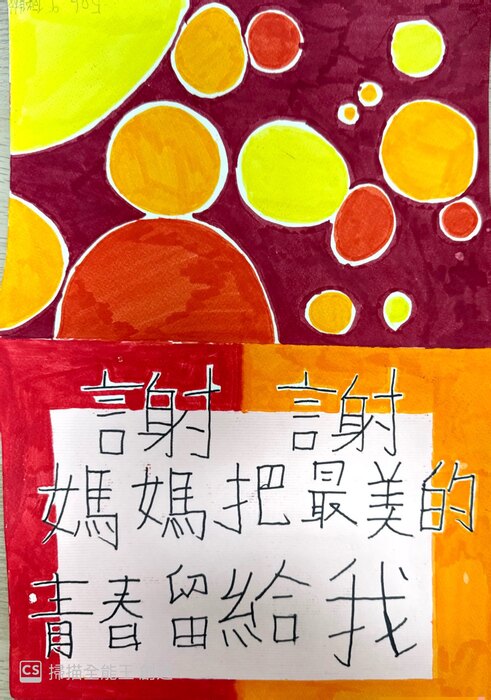 謝謝
媽媽把最美的
青春留給我
CS 掃描全能王 創建